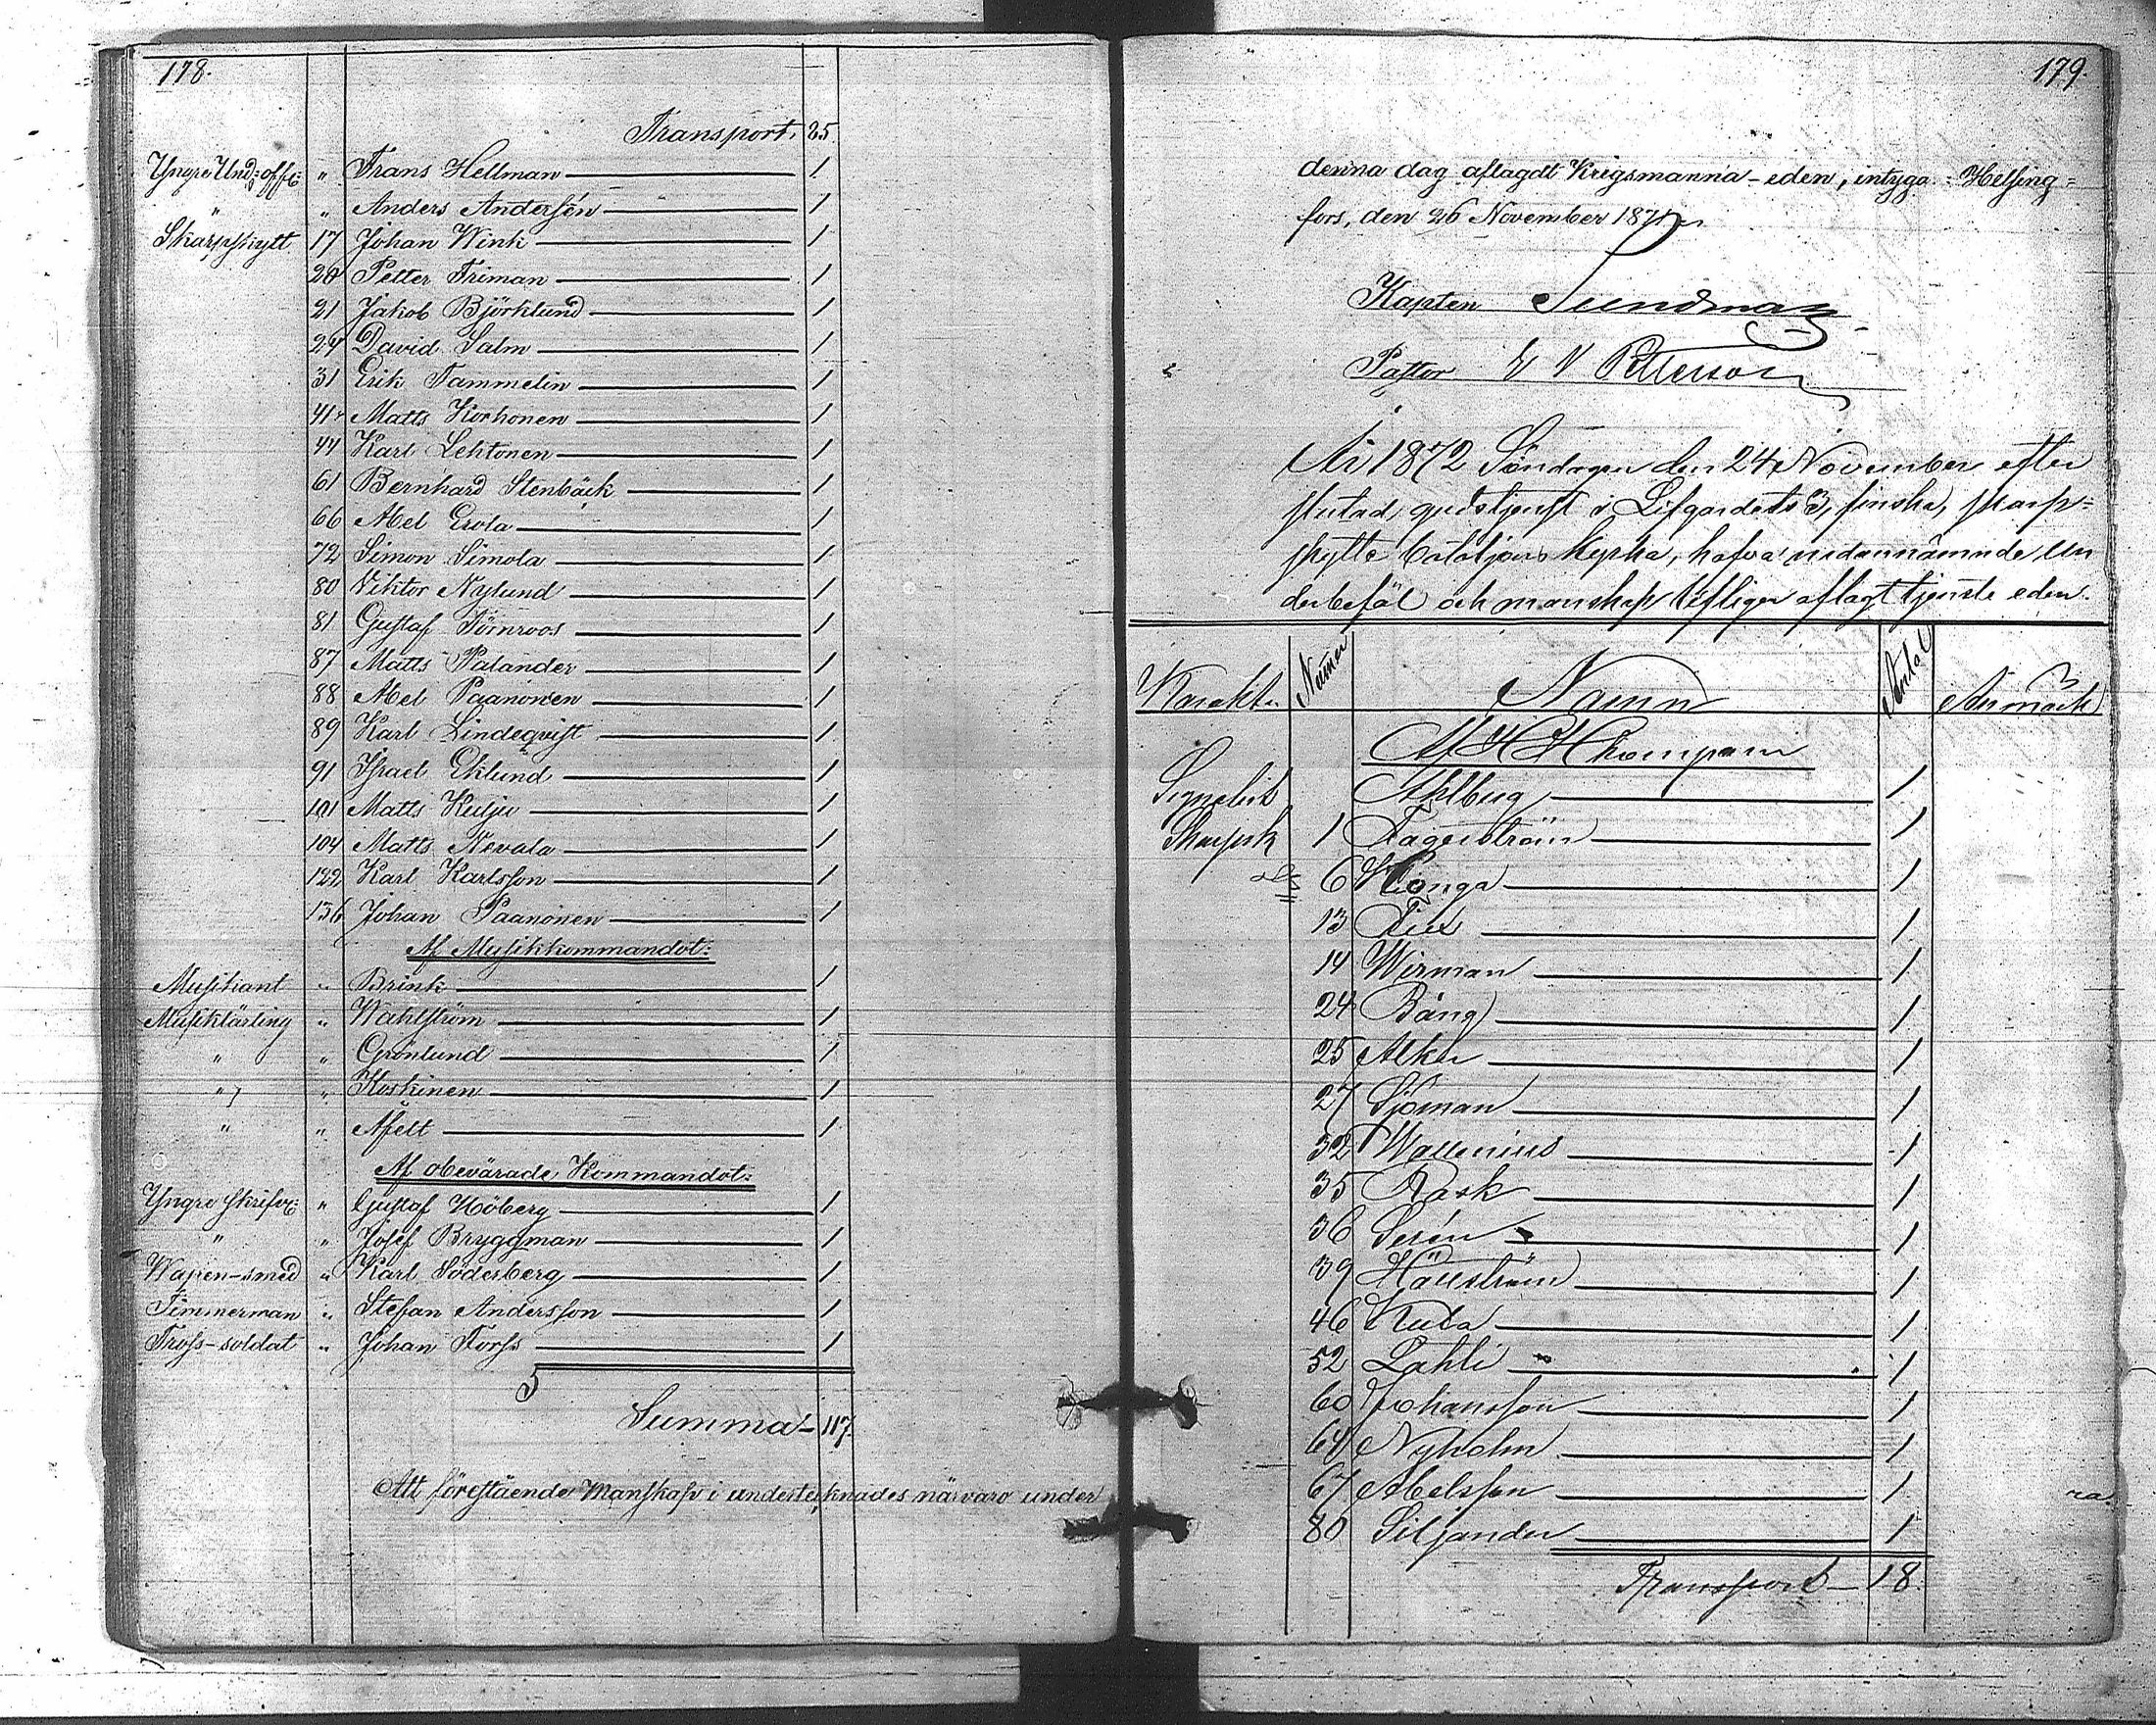 178.
Transport. 85.
Yngre Und: off: " Frans Hellman 1
" " Anders Andersén 1
Skarpskytt. 17 Johan Wink 1
20 Petter Friman 1
21 Jakob Björklund 1
24 David Salm 1
31 Erik Tammelin 1
41 Matts Korhonen 1
44 Karl Lehtonen 1
61 Bernhard Stenbäck 1
66 Abel Erola 1
72 Simon Simola 1
80 Viktor Nylund 1
81 Gustaf Törnroos 1
87 Matts Palander 1
88 Abel Paanonen 1
89 Karl Lindeqvist 1
91 Israel Eklund 1
101 Matts Keiju 1
104 Matts Nevala 1
122 Karl Karlsson 1
136 Johan Paanonen 1
Af Musikkommandot:
Musikant " Brink 1
Musiklärling " Wahlström 1
" " Grönlund 1
" " Koskinen 1
" " Afelt 1
Af obevärade Kommandot:
Yngre skrifv: " Gustaf Höberg 1
" " Josef Bryggman 1
Wapen-smed " Karl Söderberg 1
Timmerman " Stefan Andersson 1
Tross-soldat " Johan Forss 1
5
Summa - 117
Att förestående Manskap i undertecknades närvaro under
179.
denna dag aflagdt Krigsmanna-eden, intyga: Helsing=
fors, den 26 November 1871.
Kapten Sundman
Pastor E V Petterson
År 1872 Söndagen den 24 November efter
slutad gudstjenst i Lifgardets 3, finska, skarp=
skytte bataljons kyrka, hafva nedannämnde Un
derbefäl och manskap lifligen aflagt tjenste eden.
Karakter Numer Namn Antal Anmärk
Af H H kompani
Signalist Ahlberg 1
Skarpsk 1 Fagerström 1
6 Konga 1
13 Fix 1
14 Wirman 1
24 Bång 1
25 Alku 1
27 Sjöman 1
32 Wallenius 1
35 Rask 1
36 Serén 1
39 Hällström 1
46 Kuta 1
52 Lahti 1
60 Johansson 1
64 Nyholm 1
67 Abelsson 1
80 Siljander 1
Transport - 18.